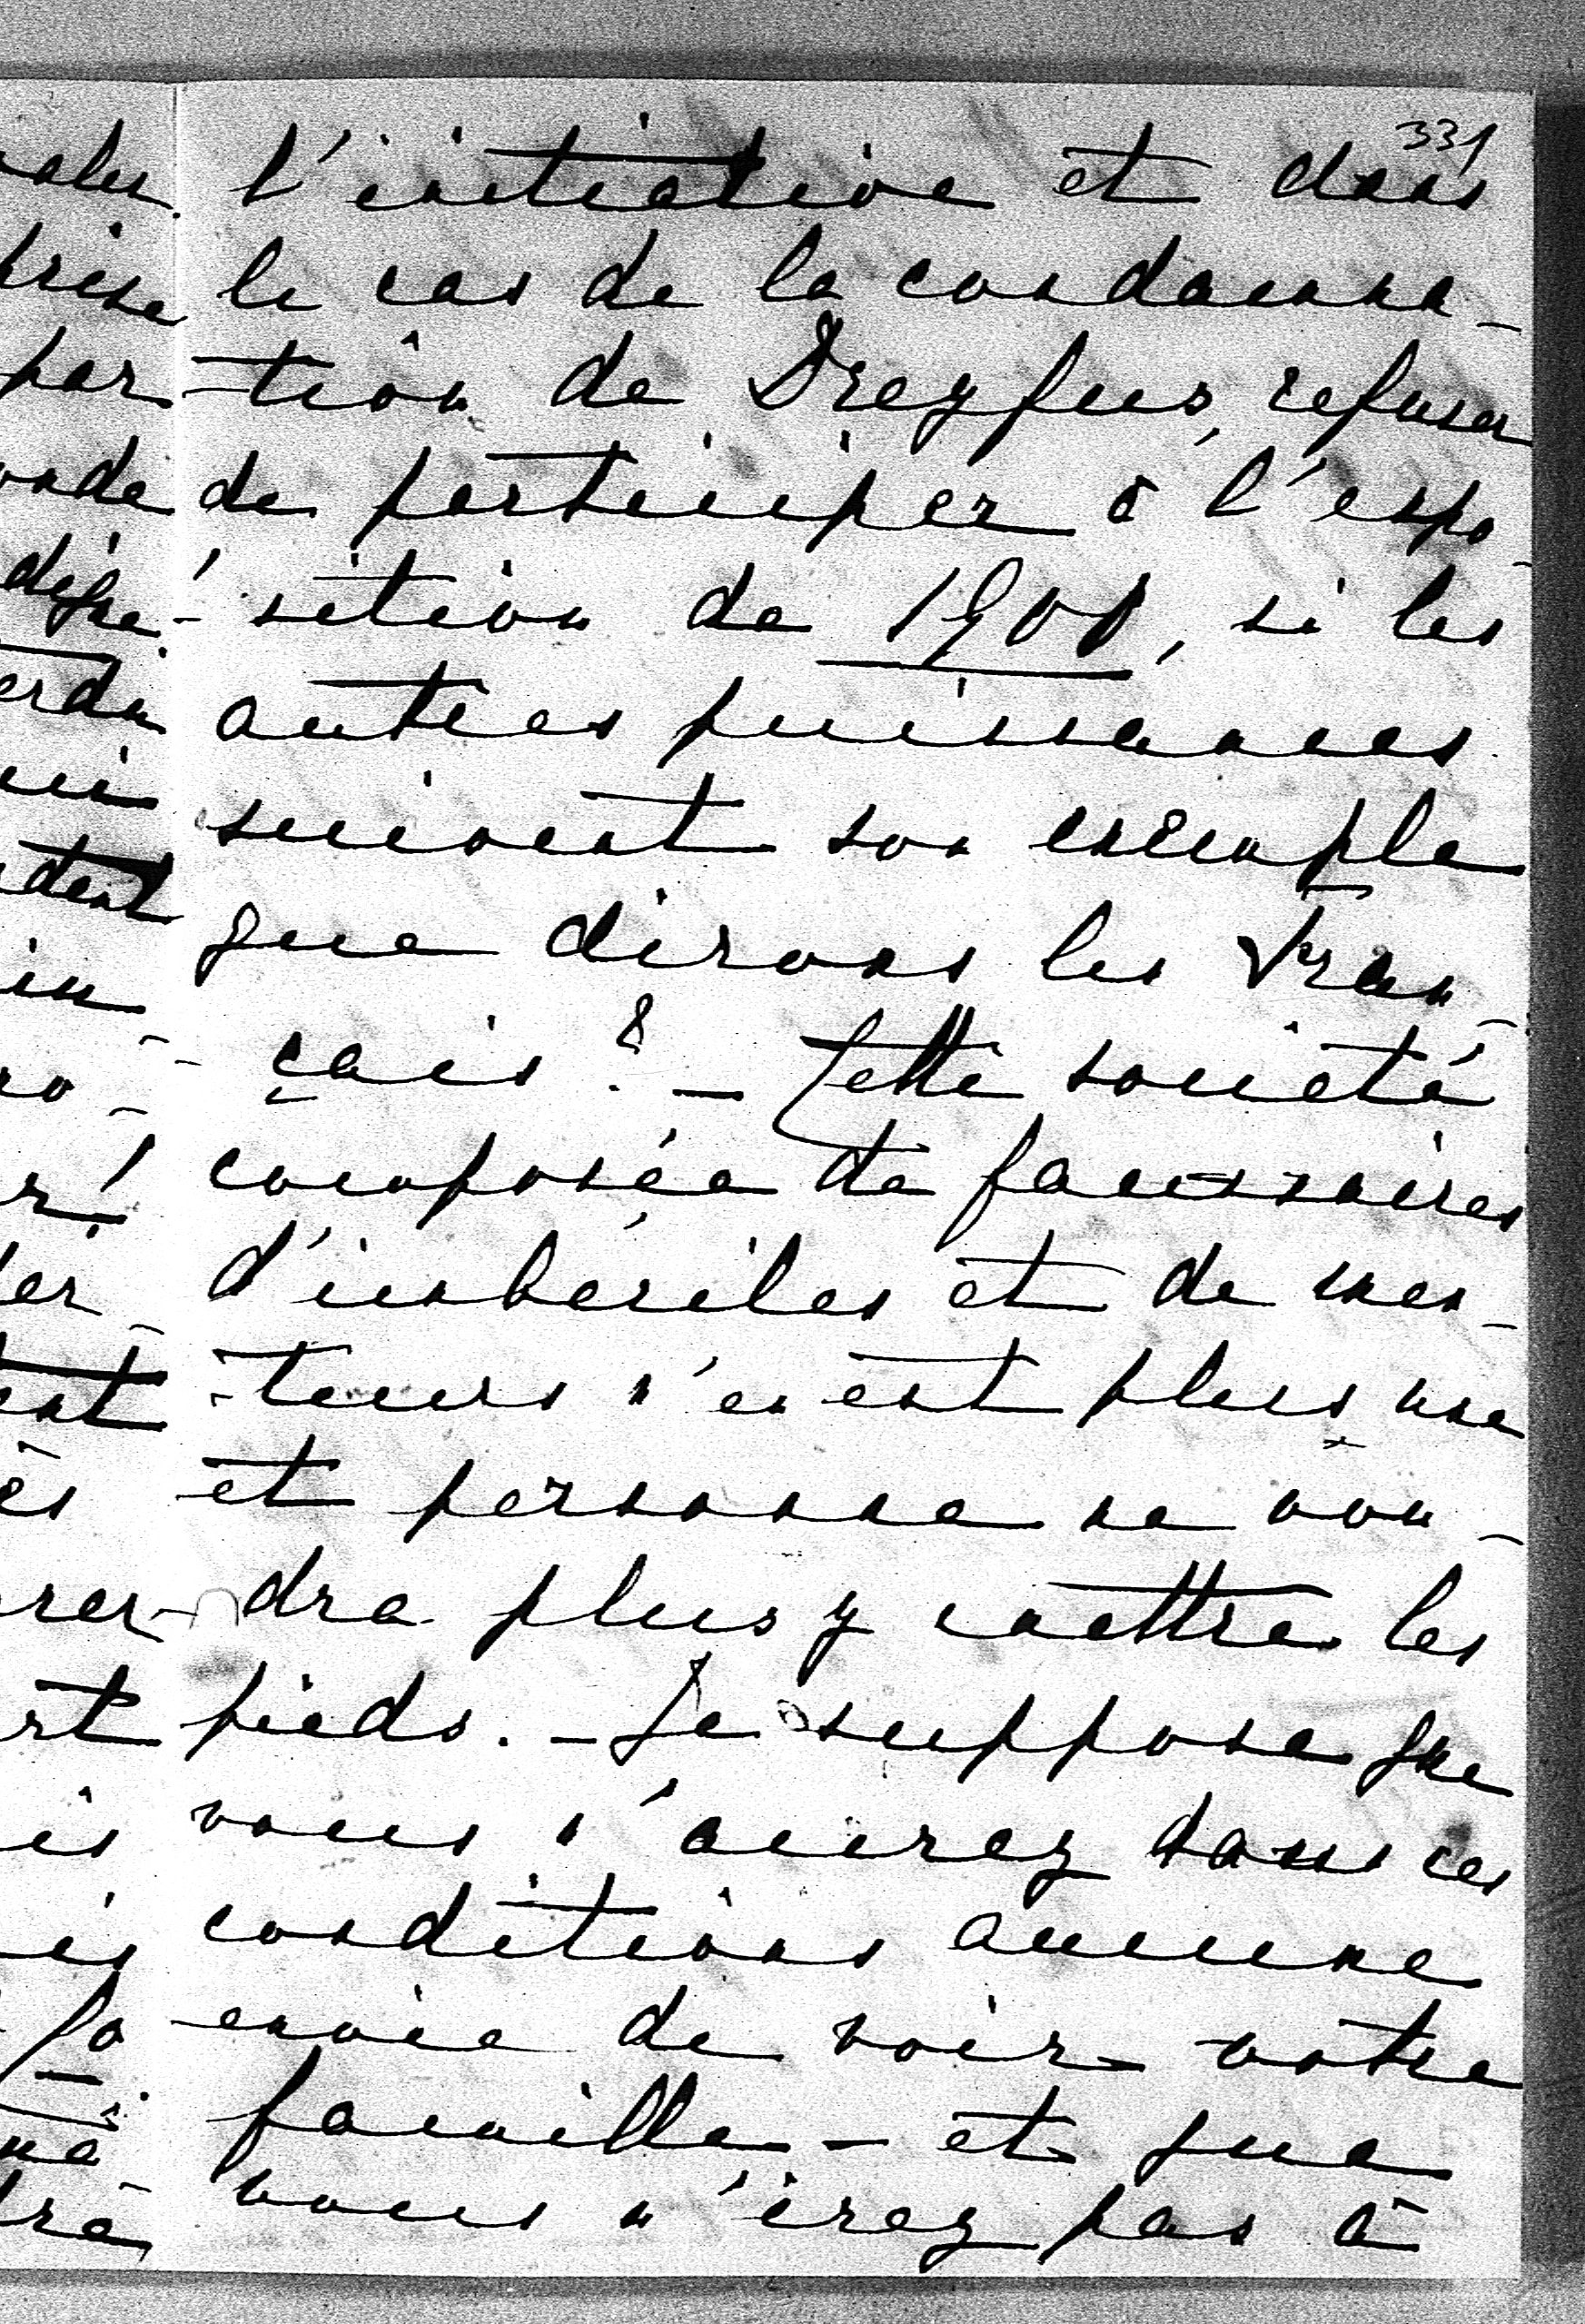 331
l'initiative et dans
le cas de la condamna-
-tion de Dreyfus, refuser
de participer à l'expo-
-sition de 1900, si les
autres puissances
suivent son exemple
que dirons les Fran-
-çais? - Cette société
composée de faussaires
d'imbéciles et de men-
-teurs n'en est plus une
et personne ne vou-
-dra plus y mettre les
pieds. - Je suppose que
vous n'aurez dans ces
conditions aucune
envie de voir votre
famille - et que
vous n'irez pas à